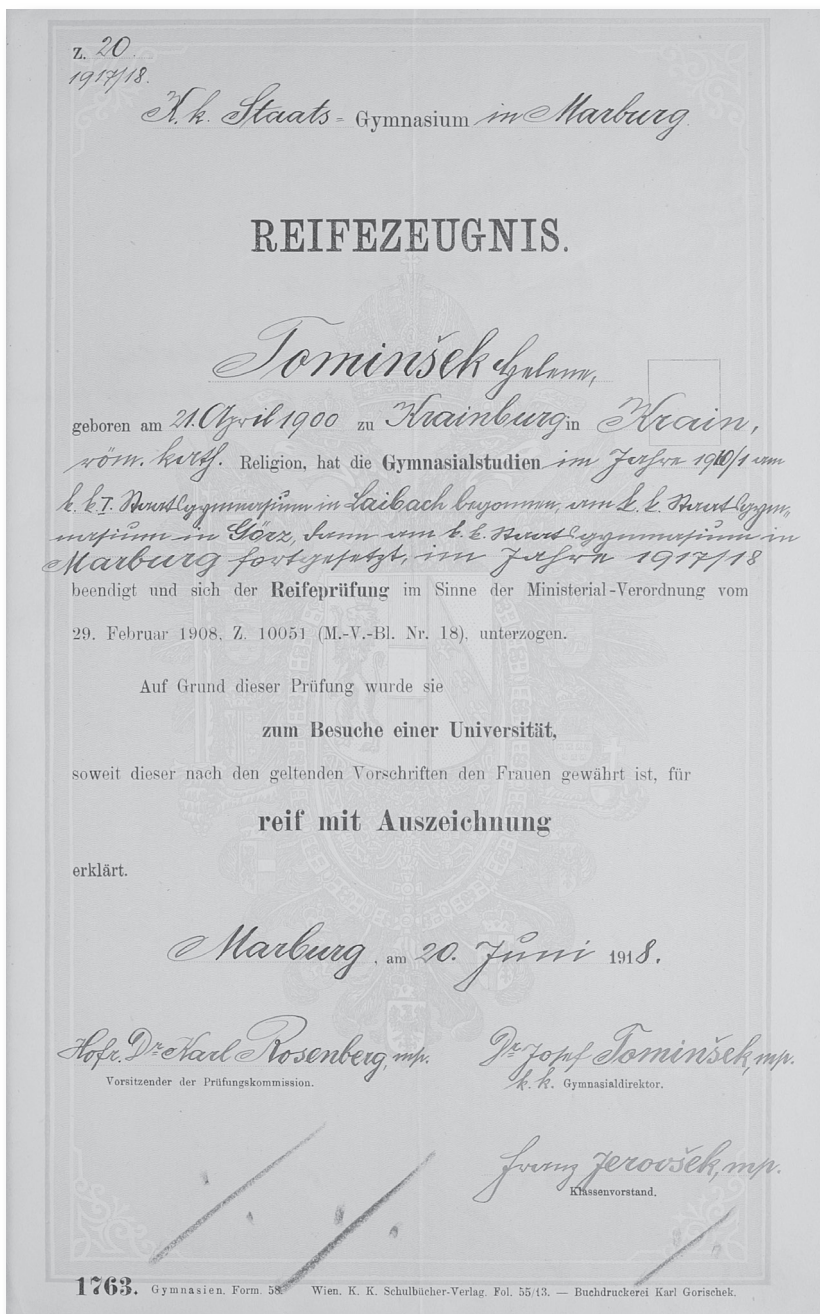 Z. 20.
1917/18.
K. k. Staats-Gymnasium in Marburg.
REIFEZEUGNIS.
Tominšek Helene,
geboren am 21. April 1900 zu Krainburg in Krain,
röm. kath. Religion, hat die Gymnasialstudien im Jahre 1910/1 am
k. k. I. Staatsgymnasium in Laibach begonnen, am k. k. Staatsgym-
nasium in Görz, dann am k. k. Staatsgymnasium in
Marburg fortgesetzt, im Jahre 1917/18
beendigt und sich der Reifeprüfung im Sinne der Ministerial-Verordnung vom
29. Februar 1908, Z. 10051 (M.-V.-Bl. Nr. 18), unterzogen.
Auf Grund dieser Prüfung wurde sie
zum Besuche einer Universität,
soweit dieser nach den geltenden Vorschriften den Frauen gewährt ist, für
reif mit Auszeichnung
erklärt.
Marburg, am 20. Juni 1918.
Hofr. Dr. Karl Rosenberg, mp. Dr. Josef Tominšek, mp.
Vorsitzender der Prüfungskommission. k. k. Gymnasialdirektor.
Franz Jerovšek, mp.
Klassenvorstand.
1763. Gymnasien, Form. 58. Wien. K. K. Schulbücher-Verlag. Fol. 55/13. — Buchdruckerei Karl Gorischek.